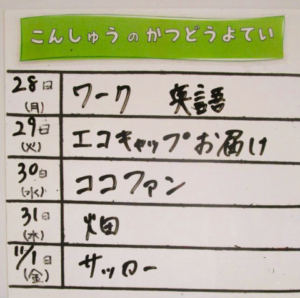 こんしゅうのかつどうよてい
28日(月) ワーク 英語
29日(火) エコキャップお届け
30日(水) ココファン
31日(木) 畑
11/1日(金) サッカー